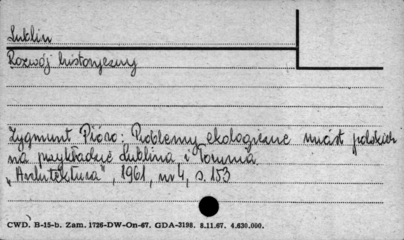 Lublin
Rozwój historyczny
Zygmunt Pióro: Problemy ekologiczne miast polskich
na przykładzie Lublina i Torunia
„Architektura", 1961, nr 4, s. 153
CWD. B-15-b. Zam. 1726-DW-On-67. GDA-3198. 8.11.67. 4.630.000.